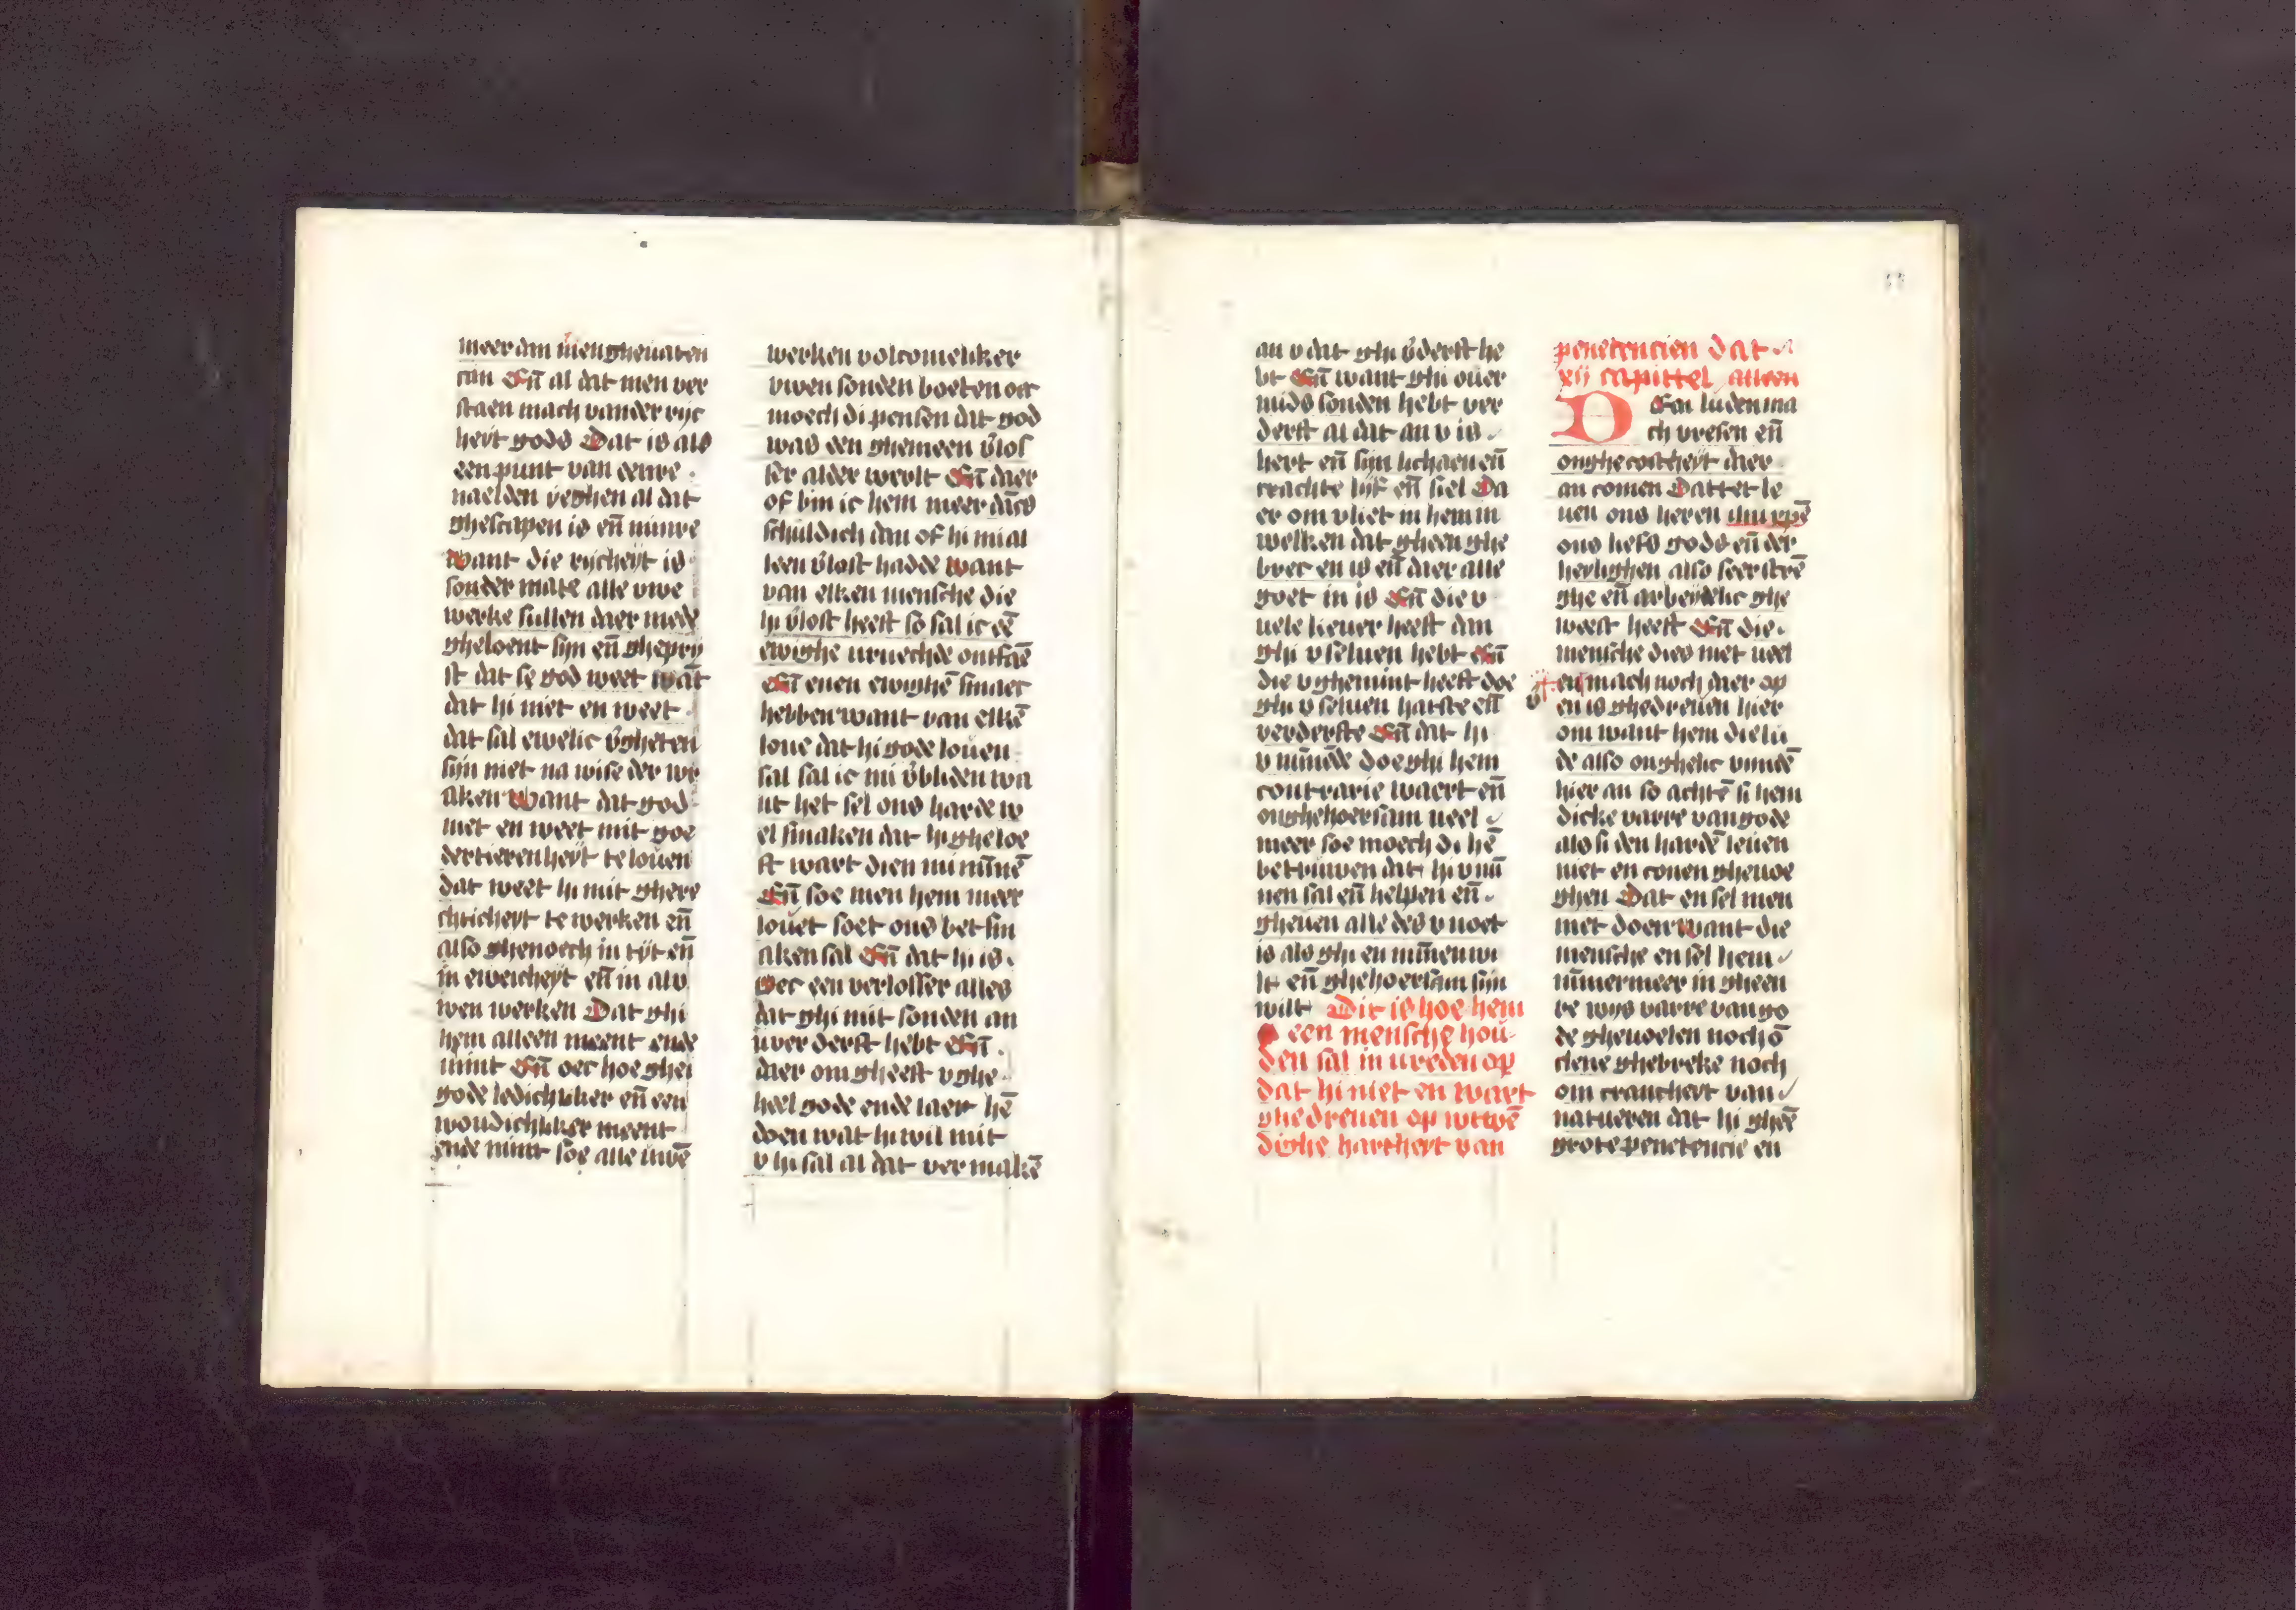 meer dan men ghenaten
can Eñ al dat men ver
staen mach vander ryc
heyt gods Dat is als
een punt van eenre
naelden yeghen al dat
ghescapen is eñ minre
want die rycheyt is
sonder mate alle uwe
werke sullen daer mede
gheloent sijn eñ ghepry
st dat se god weet wāt
dat hi niet en weet
dat sal ewelic v̄gheten
sijn niet na wise der wr
aken Want dat god
niet en weet mit goe
dertierenheyt te louen
dat weet hi mit ghere
chticheyt te werken eñ
also ghenoech in tyt eñ
in eweicheyt eñ in alu
wen werken Dat ghi
hem alleen meent ende
mint Eñ oec hoe ghi
gode ledichliker eñ een
woudichliker meent
ende mint soe alle uwē
werken volcomeliker
uwen sonden boeten oec
moech di pensen dat god
was den ghemeen v̄los
ser alder werlt Eñ daer
of bin ic hem meer dācs
schuldich dan of hi mi al
leen v̄lost hadde want
van elken mensche die
hi v̄lost heeft so sal ic eē
ewighe vruechde ontfaē
Eñ enen ewighē smaec
hebben want van elkē
loue dat hi gode louen
sal sal ic mi v̄bliden wa
nt het sel ons harde w
el smaken dat hi gheloe
ft wart dien mi minnē
Eñ soe men hem meer
louet soet ons bet sm
aken sal Eñ dat hi is
Oec een verlosser alles
dat ghi mit sonden an
u ver derft hebt Eñ
daer om gheeft v ghe
heel gode ende laet hē
doen wat hi wil mit
v hi sal al dat ver makē
an v dat ghi v̄derft he
bt Eñ want ghi ouer
mids sonden hebt ver
derft al dat an v is
hert eñ sijn lichaem eñ
crachte lijf eñ siel Da
er om vliet in hem in
welken dat gheen ghe
brec en is eñ daer alle
goet in is Eñ die v
uele lieuer heeft dan
ghi v seluen hebt Eñ
die v ghemint heeft doe
ghi v seluen hatste eñ
verderfte Eñ dat hi
v minde doe ghi hem
contrarie waert eñ
onghehoersam ueel
meer soe moech di hē
betruwen dat hi v mī
nen sal eñ helpen eñ
gheuen alle des v noet
is als ghi en minnen wi
lt eñ ghehoersam sijn
wilt Dit is hoe hem
een mensche hou
den sal in vreden op
dat hi niet en wart
ghedreuen op wtwē
dighe hartheyt van
penetencien dat
xij capittel alleen
D Een luden ma
ch vresen eñ
onghecostheyt daer
an comen Dattet le
uen ons heren
ons liefs gods eñ der
heylighen also seer strē
ghe eñ arbeydelic ghe
weest heeft Eñ die
mensche dies niet ueel
en mach noch daer op
en is ghedreuen hier
om want hem die lu
de also onghelic vindē
hier an so achtē si hem
dicke varre van gode
als si den hardē leuen
niet en conen gheuoe
ghen Dat en sel men
niet doen want die
mensche en sel hem
nimmermeer in gheen
re wys varre van go
de gheuoelen noch ō
clene ghebreke noch
om cranchert van
natueren dat hi gheē
grote penetencie en